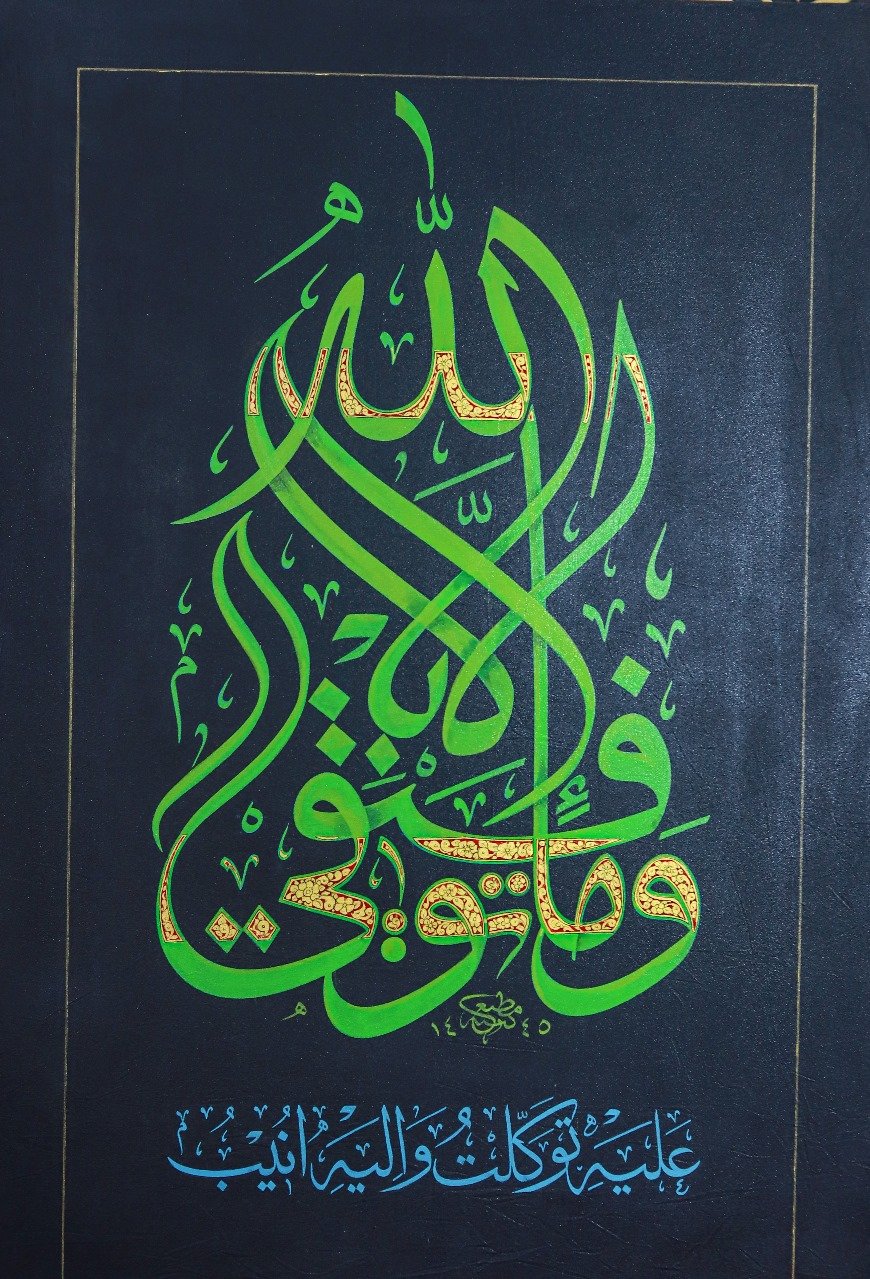 وَمَا تَوْفِيقِي إِلَّا بِاللَّهِ
١٤٤٥
عَلَيْهِ تَوَكَّلْتُ وَاِلَيْهِ اُنِيبُ